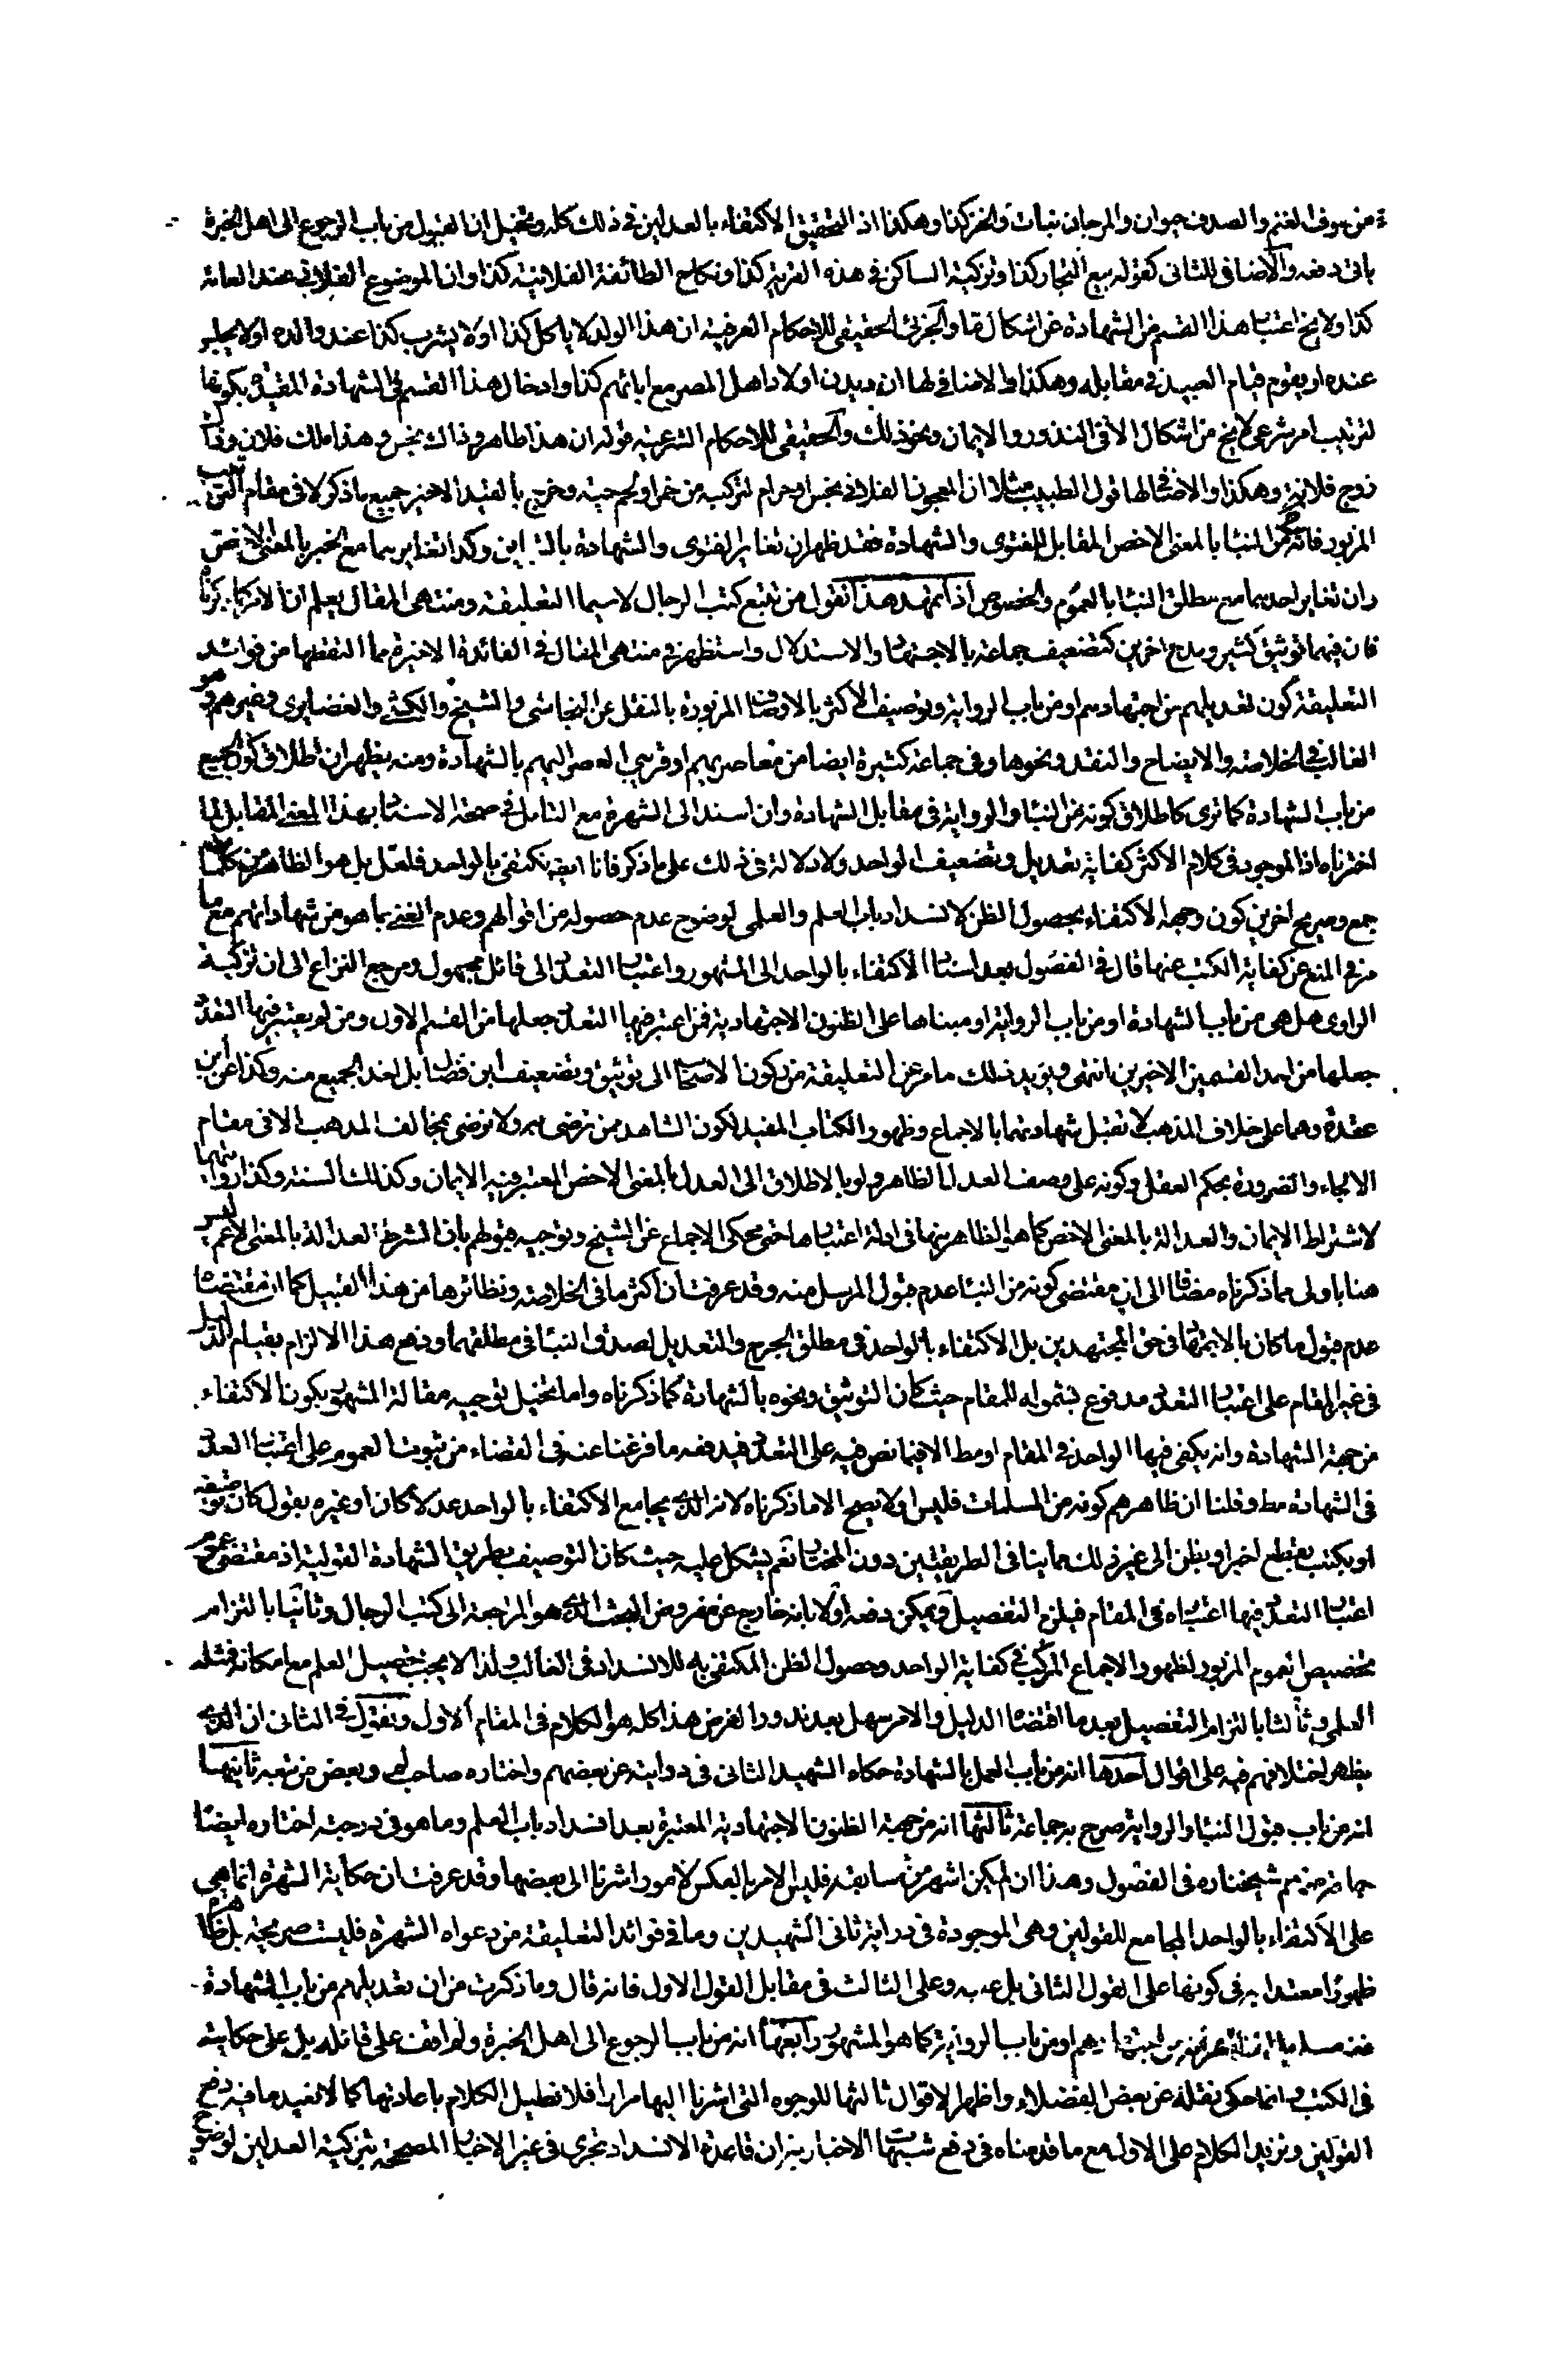 من صوف الغنم والصدف حيوان والمرجان نبات والخز كذا وهكذا اذ التحقيق الاكتفاء بالعدلين في ذلك كله وتخيل ان القبول من باب الرجوع الى اهل الخبرة
ياتى دفعه والاضافى للثانى كقوله بيع التجار كذا وتركية الساكن في هذه القرية كذا ونكاح الطائفة الفلانية كذا وان الموضوع الفلانى عند العامة
كذا ولا يخ اعتبار هذا القسم من الشهادة عن اشكال ما والجزئى الحقيقى للاحكام العرفية ان هذا الولد لا ياكل كذا او لا يشرب كذا عند والده او لا يجلس
عنده او يقوم قيام العبيد في مقابله وهكذا والاضافى لها ان ديدن اولاد اهل المصر مع ابائهم كذا وادخال هذا القسم في الشهادة المقيدة بكونها
لترتيب امر شرعى لا يخ من اشكال الا فى النذور والايمان ونحو ذلك والحقيقى للاحكام الشرعية قوله ان هذا طاهر وذاك نجس وهذا ملك فلان وذاك
زوج فلانة وهكذا والاضافى لها قول الطبيب مثلا ان المعجون الفلانى نجس او حرام لتركبه من خمر او لحم حية وخرج بالقيد الاخير جميع ما ذكر لا فى مقام الترتيب
المزبور فانه من النبأ بالمعنى الاخص المقابل للفتوى والشهادة فقد ظهر ان تغاير الفتوى والشهادة بالتباين وكذا تغايرهما مع الخبر بالمعنى الاخص
وان تغاير احدهما مع مطلق النبأ بالعموم والخصوص اذا تمهد هذا نقول من تتبع كتب الرجال لاسيما التعليقة ومنتهى المقال يعلم ان الامر كما ذكرناه
فان فيهما توثيق كثير ومدح اخرين كتضعيف جماعة بالاجتهاد والاستدلال واستظهر في منتهى المقال في الفائدة الاخيرة مما التقطها من فوائد
التعليقة كون تعديلهم من اجتهادهم او من باب الرواية وتوصيف الاكثر بالاوصاف المزبورة بالنقل عن النجاشى والشيخ والكشى والغضايرى وغيرهم وهو
الغالب في الخلاصة والايضاح والنقد ونحوها وفى جماعة كثيرة ايضا من معاصريهم او قريبى العصر اليهم بالشهادة ومنه يظهر ان اطلاق كون الجميع
من باب الشهادة كما ترى كاطلاق كونه من النبأ والرواية في مقابل الشهادة وان اسند الى الشهرة مع التامل في صحة الاسناد بهذا المعنى المقابل لما
اخترناه اذ الموجود في كلام الاكثر كفاية تعديل وتضعيف الواحد ولا دلالة في ذلك على ما ذكر فانا ايضا نكتفى بالواحد فلعل بل هو الظاهر من كلمات
جمع وصريح اخرين كون وجه الاكتفاء بحصول الظن لانسداد باب العلم والعلمى لوضوح عدم حصوله من اقوالهم وعدم الغنى بما هو من شهاداتهم مع ما
مر في المنع عن كفاية الكتب عنها قال في الفصول بعد اسناد الاكتفاء بالواحد الى المشهور واعتبار التعدد الى قائل مجهول ومرجع النزاع الى ان تزكية
الراوى هل هى من باب الشهادة او من باب الرواية او مبناها على الظنون الاجتهادية فمن اعتبر فيها التعدد جعلها من القسم الاول ومن لم يعتبر فيها التعدد
جعلها من احد القسمين الاخيرين انتهى ويؤيد ذلك ما مر عن التعليقة من ركون الاصحاب الى توثيق وتضعيف ابن فضال بل اخذ الجميع منه وكذا عن ابن
عقدة وهما على خلاف المذهب لا تقبل شهادتهما بالاجماع وظهور الكتاب المفيد لكون الشاهد ممن ترضى به ولا نرضى بمخالف المذهب الا فى مقام
الالجاء والضرورة بحكم العقل وكونه على وصف العدل الظاهر ولو بالاطلاق الى العدل بالمعنى الاخص المعتبر فيه الايمان وكذلك السنة وكذا روايتهما
لاشتراط الايمان والعدالة بالمعنى الاخص كما هو الظاهر منها فى ادلة اعتبارها حتى محكى الاجماع عن الشيخ وتوجيه قبولهم بان المشترط العدالة بالمعنى الاعم ليس
هنا باولى مما ذكرناه مضافا الى ان مقتضى كونه من النبأ عدم قبول المرسل منه وقد عرفت ان اكثر ما فى الخلاصة ونظائرها من هذا القبيل كما ان مقتضاه
عدم قبول ما كان بالاجتهاد في حق المجتهدين بل الاكتفاء بالواحد في مطلق الجرح والتعديل لصدق النبأ فى مطلقهما ودفع هذا الالزام بقيام الدليل
فى غير المقام على اعتبار التعدد مدفوع بشموله للمقام حيث كان التوثيق ونحوه بالشهادة كما ذكرناه واما تخيل توجيه مقالة المشهور بكون الاكتفاء
من جهة الشهادة وانه يكفى فيها الواحد في المقام او مط الا فيما نص فيه على التعدد فيدفعه ما فرغنا عنه فى القضاء من ثبوت العموم على اعتبار العدد
فى الشهادة مط وقلنا ان ظاهرهم كونه من المسلمات فليس اولا يصح الا ما ذكرناه لانه الذى يجامع الاكتفاء بالواحد عدلا كان او غيره بقول كان توصيفه
او بكتب بقطع اخبر او بظن الى غير ذلك مما ينافى الطريقتين دون المختار نعم يشكل عليه حيث كان التوصيف بطريق الشهادة القولية اذ مقتضى عموم
اعتبار التعدد فيها اعتباره في المقام فيلزم التفصيل ويمكن دفعه اولا بانه خارج عن مفروض البحث الذى هو المراجعة الى كتب الرجال وثانيا بالتزام
تخصيص العموم المزبور لظهور الاجماع المركب في كفاية الواحد وحصول الظن المكتفى به للانسداد فى الغالب ولذا لا يجب تحصيل العلم مع امكانه فمثله
العلمى وثالثا بالتزام التفصيل بعد ما اقتضاه الدليل والامر سهل بعد ندور الفرض هذا كله هو الكلام فى المقام الاول ونقول في الثانى ان الذى
يظهر اختلافهم فيه على اقوال احدها انه من باب العمل بالشهادة حكاه الشهيد الثانى فى دراية عن بعضهم واختاره صاحب لم وبعض من تبعه ثانيها
انه من باب قبول النبأ والرواية صرح به جماعة ثالثها انه من جهة الظنون الاجتهادية المعتبرة بعد انسداد باب العلم وما هو فى درجته اختاره ايضا
جماعة منهم شيخنا ره فى الفصول وهذا ان لم يكن اشهر من سابقه فليس الامر بالعكس لامور اشرنا الى بعضها وقد عرفت ان حكاية الشهرة انما هى
على الاكتفاء بالواحد المجامع للقولين وهى الموجودة فى دراية ثانى الشهيدين وما في فوائد التعليقة من دعواه الشهرة فليست صريحة بل ظاهرة
ظهورا معتدا به فى كونها على القول الثانى بل عليه وعلى الثالث فى مقابل القول الاول فانه قال وما ذكرت من ان تعديلهم من باب الشهادة
او من باب الرواية كما هو المشهور رابعها انه من باب الرجوع الى اهل الخبرة ولم اقف على قائله بل على حكايته
فى الكتب وانما حكى نقله عن بعض الفضلاء واظهر الاقوال ثالثها للوجوه التى اشرنا اليها مرارا فلا نطيل الكلام باعادتها كما لا نعيد ما فيه دفع
القولين ونزيد الكلام على الاول مع ما قدمناه فى دفع شبهات الاخبارية ان قاعدة الانسداد تجرى فى غير الاخبار المصححة بتزكية العدلين لوضوح